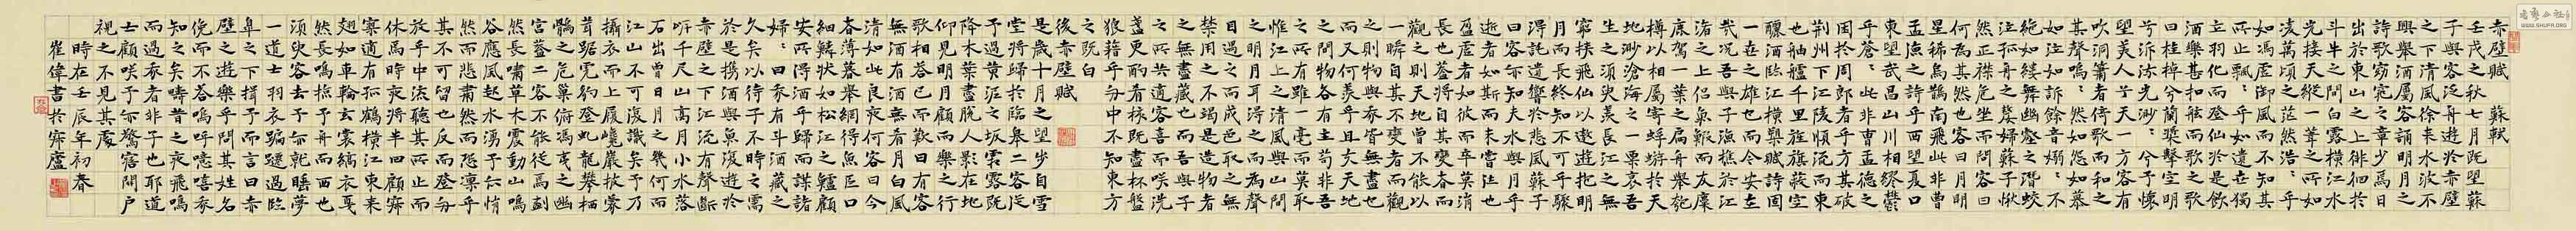 赤壁賦 蘇軾
壬戌之秋七月既望蘇
子與客泛舟遊於赤壁
之下清風徐來水波不
興舉酒屬客誦明月之
詩歌窈窕之章少焉月
出於東山之上徘徊於
斗牛之間白露橫江水
光接天縱一葦之所如
凌萬頃之茫然浩浩乎
如馮虛御風而不知其
所止飄飄乎如遺世獨
立羽化而登仙於是飲
酒樂甚扣舷而歌之歌
曰桂棹兮蘭槳擊空明
兮泝流光渺渺兮予懷
望美人兮天一方客有
吹洞簫者倚歌而和之
其聲嗚嗚然如怨如慕
如泣如訴餘音嫋嫋不
絕如縷舞幽壑之潛蛟
泣孤舟之嫠婦蘇子愀
然正襟危坐而問客曰
何為其然也客曰月明
星稀烏鵲南飛此非曹
孟德之詩乎西望夏口
東望武昌山川相繆鬱
乎蒼蒼此非曹孟德之
困於周郎者乎方其破
荊州下江陵順流而東
也舳艫千里旌旗蔽空
釃酒臨江橫槊賦詩固
一世之雄也而今安在
哉況吾與子漁樵於江
渚之上侶魚鰕而友麋
鹿駕一葉之扁舟舉匏
樽以相屬寄蜉蝣於天
地渺滄海之一粟哀吾
生之須臾羨長江之無
窮挾飛仙以遨遊抱明
月而長終知不可乎驟
得託遺響於悲風蘇子
曰客亦知夫水與月乎
逝者如斯而未嘗往也
盈虛者如彼而卒莫消
長也蓋將自其變者而
觀之則天地曾不能以
一瞬自其不變者而觀
之則物與我皆無盡也
而又何羨乎且夫天地
之間物各有主苟非吾
之所有雖一毫而莫取
惟江上之清風與山間
之明月耳得之而為聲
目遇之而成色取之無
禁用之不竭是造物者
之無盡藏也而吾與子
之所共適客喜而咲洗
盞更酌肴核既盡杯盤
狼藉乎舟中不知東方
之既白
後赤壁賦
是歲十月之望步自雪
堂將歸於臨皋二客從
予過黃泥之坂霜露既
降木葉盡脫人影在地
仰見明月顧而樂之行
歌相答已而歎曰有客
無酒有酒無肴月白風
清如此良夜何客曰今
者薄暮舉網得魚巨口
細鱗狀如松江之鱸顧
安所得酒乎歸而謀諸
婦婦曰我有斗酒藏之
久矣以待子不時之需
於是攜酒與魚復遊於
赤壁之下江流有聲斷
岸千尺山高月小水落
石出曾日月之幾何而
江山不可復識矣予乃
攝衣而上履巉巖披蒙
茸踞虎豹登虬龍攀栖
鶻之危巢俯馮夷之幽
宮蓋二客不能從焉劃
然長嘯草木震動山鳴
谷應風起水湧予亦悄
然而悲肅然而恐凜乎
其不可留也反而登舟
放乎中流聽其所止而
休焉時夜將半四顧寂
寥適有孤鶴橫江東來
翅如車輪玄裳縞衣戛
然長鳴掠予舟而西也
須臾客去予亦就睡夢
一道士羽衣蹁躚過臨
皋之下揖予而言曰赤
壁之遊樂乎問其姓名
俛而不答嗚呼噫嘻我
知之矣疇昔之夜飛鳴
而過我者非子也耶道
士顧咲予亦驚寤開戶
視之不見其處
時在壬辰年初春
崔偉書於寂廬
WWW.SHUFA.ORG